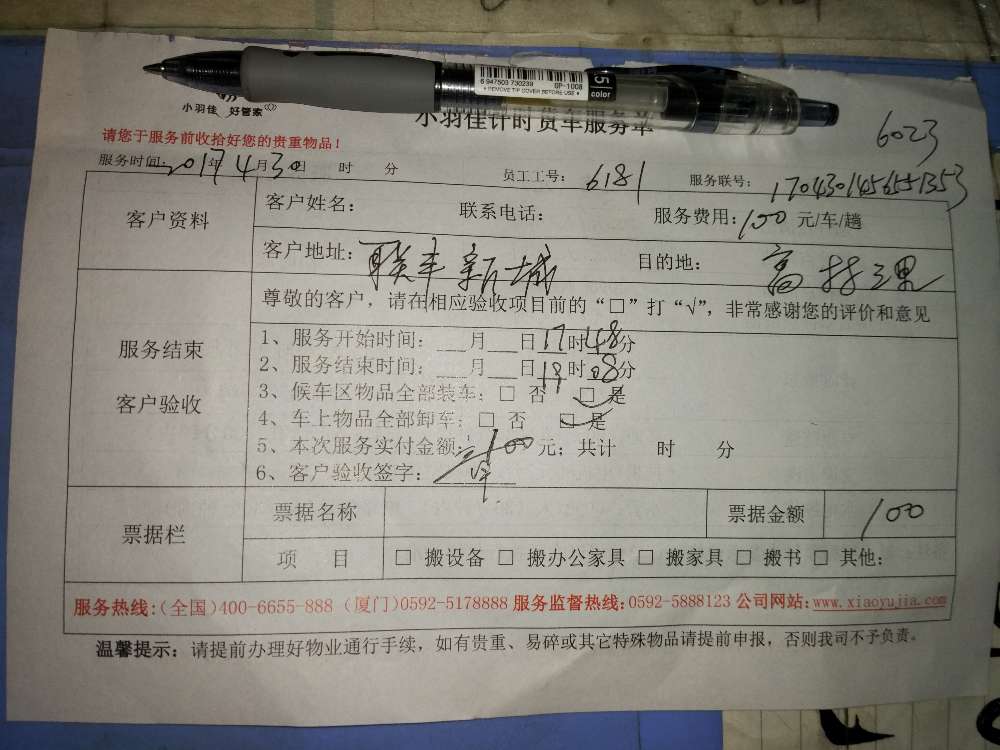 6 947503 730239 GP-1008
• REMOVE TIP COVER BEFORE USE •
5
color
小羽佳 好管家
小羽佳计时货车服务单
6023
请您于服务前收拾好您的贵重物品！
服务时间：2017年4月30日 时 分 员工工号：6181 服务联号：1704301456551353
客户资料
客户姓名： 联系电话： 服务费用：100元/车/趟
客户地址：联丰新城 目的地：高持
服务结束
客户验收
尊敬的客户，请在相应验收项目前的“□”打“√”，非常感谢您的评价和意见
1、服务开始时间：___月___日17时48分
2、服务结束时间：___月___日19时08分
3、候车区物品全部装车：□ 否 □ 是
4、车上物品全部卸车：□ 否 □ 是
5、本次服务实付金额：100元；共计 时 分
6、客户验收签字：
票据栏
票据名称 票据金额 100
项 目 □ 搬设备 □ 搬办公家具 □ 搬家具 □ 搬书 □ 其他：
服务热线：(全国)400-6655-888 (厦门)0592-5178888 服务监督热线：0592-5888123 公司网站：www.xiaoyujia.com
温馨提示：请提前办理好物业通行手续，如有贵重、易碎或其它特殊物品请提前申报，否则我司不予负责。